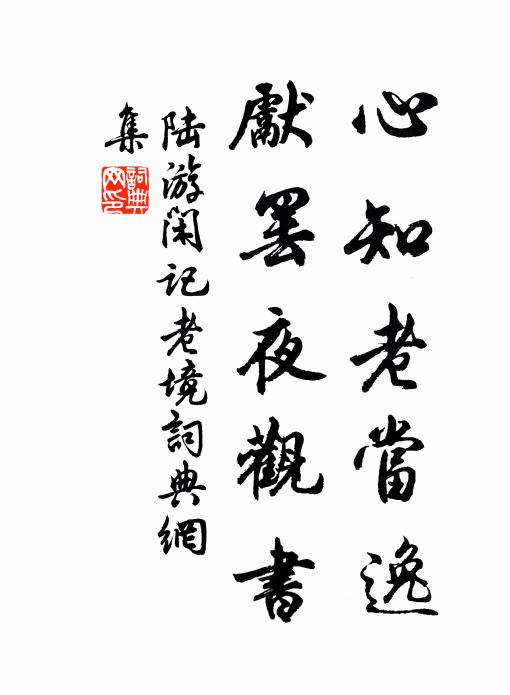 心知老當逸
獻罢夜觀書
陸游閑記老境詞典網
集
詞典
网印